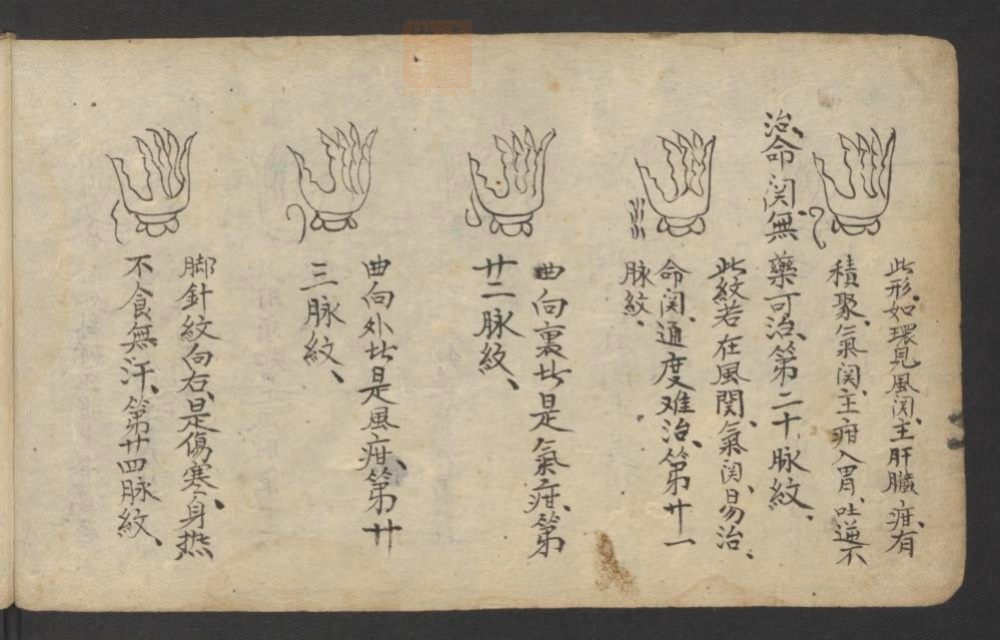 此形如環見風関主肝臟疳有
積聚、氣関、主疳入胃、吐逆不
治、命関、無藥可治、第二十脉紋、
此紋若在風関、氣関、易治、
命関、通度难治、第廿一
脉紋、
曲向裏此是氣疳、第
廿二脉紋、
曲向外此是風疳、第廿
三脉紋、
脚針紋向右、是傷寒、身热
不食無汗、第廿四脉紋、